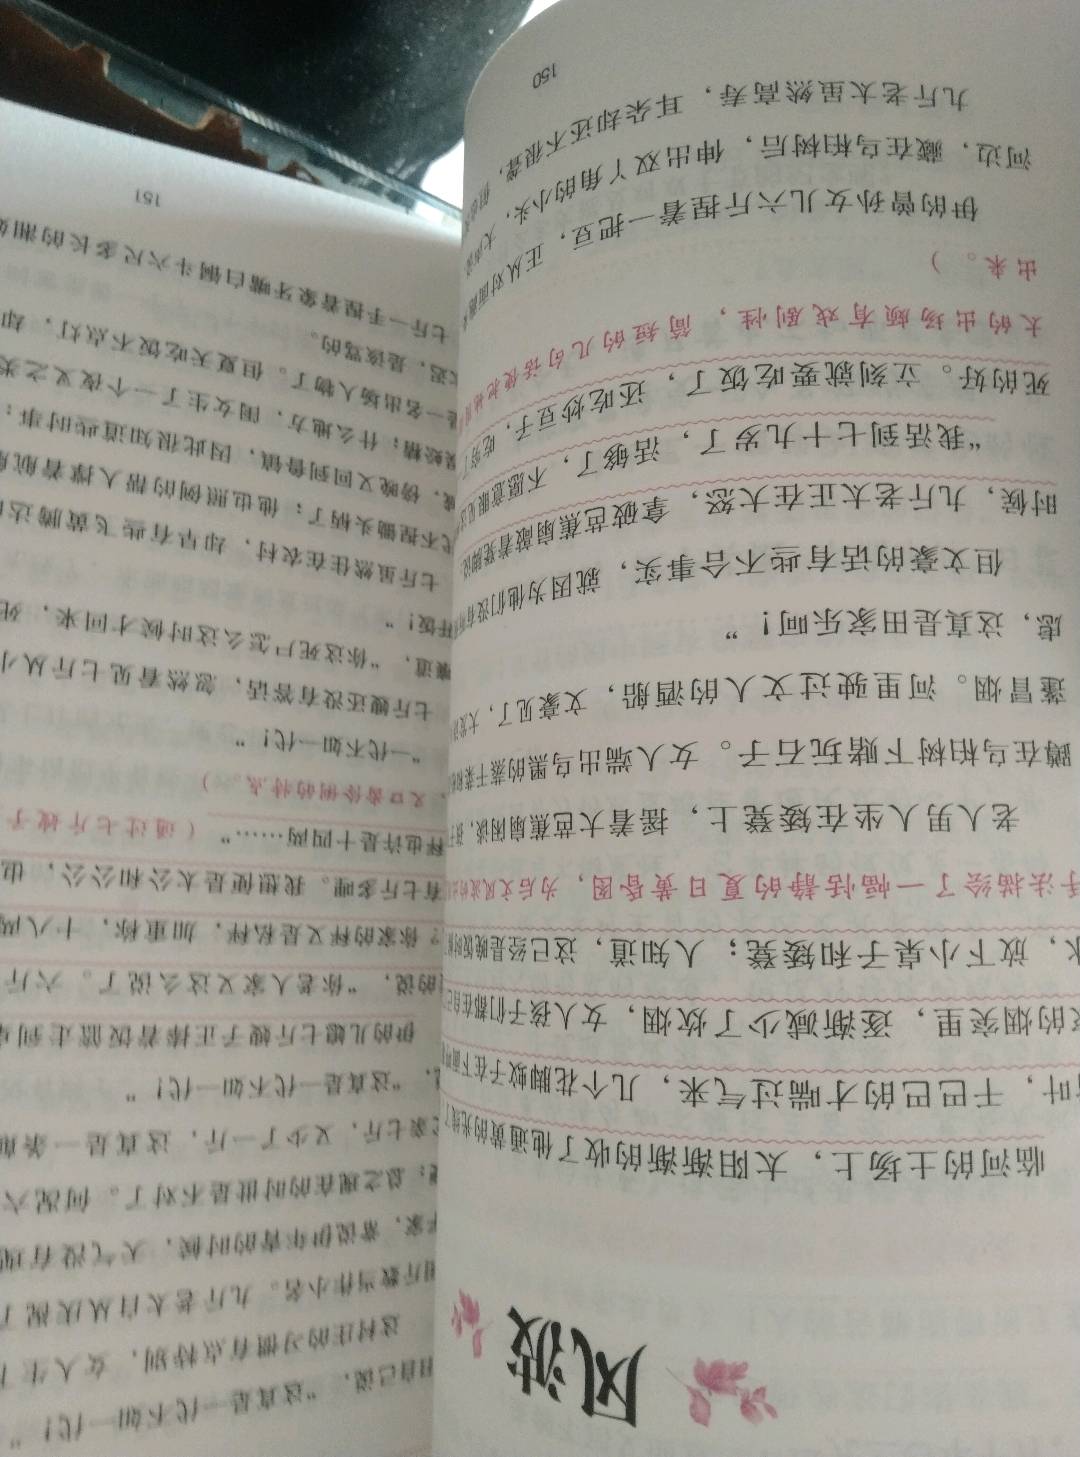 风波
临河的土场上，太阳渐渐的收了他通黄的光线了
叶，干巴巴的才喘过气来，几个花脚蚊子在下面哼
的烟突里，逐渐减少了炊烟，女人孩子们都在自己
水，放下小桌子和矮凳；人知道，这已经是晚饭时候
手法描绘了一幅恬静的夏日黄昏图，为后文风波的
老人男人坐在矮凳上，摇着大芭蕉扇闲谈，孩子
蹲在乌桕树下赌玩石子。女人端出乌黑的蒸干菜和松
蓬冒烟。河里驶过文人的酒船，文豪见了，大发诗
虑，这真是田家乐呵！”
但文豪的话有些不合事实，就因为他们没有听
时候，九斤老太正在大怒，拿破芭蕉扇敲着凳脚说
“我活到七十九岁了，活够了，不愿意眼见这
死的好。立刻就要吃饭了，还吃炒豆子，吃穷了
太的出场颇有戏剧性，简短的几句话便把
出来。）
伊的曾孙女儿六斤捏着一把豆，正从对面跑来
河边，藏在乌桕树后，伸出双丫角的小头，大声说
九斤老太虽然高寿，耳朵却还不很聋，但也
150
自己说，“这真是一代不如一代！”
这村庄的习惯有点特别，女人生下
用斤数当作小名。九斤老太自从庆祝了
平家，常说伊年青的时候，天气没有现
；总之现在的时世是不对了。何况六
家七斤，又少了一斤，这真是一条
，“这真是一代不如一代！”
伊的儿媳七斤嫂子正捧着饭篮走到
的说，“你老人家又这么说了。六斤
？你家的秤又是私秤，加重称，十八两
有七斤多哩。我想便是太公和公公，也
秤也许是十四两……”（通过七斤嫂子
，又口齿伶俐的特点。）
“一代不如一代！”
七斤嫂还没有答话，忽然看见七斤从小
嚷道，“你这死尸怎么这时候才回来，死
开饭！”
七斤虽然住在农村，却早有些飞黄腾达的
代不捏锄头柄了；他也照例的帮人撑着航船
城，傍晚又回到鲁镇，因此很知道些时事：
蜈蚣精；什么地方，闺女生了一个夜叉之类
是一名出场人物了。但夏天吃饭不点灯，却
太迟，是该骂的。
七斤一手捏着象牙嘴白铜斗六尺多长的湘妃
151